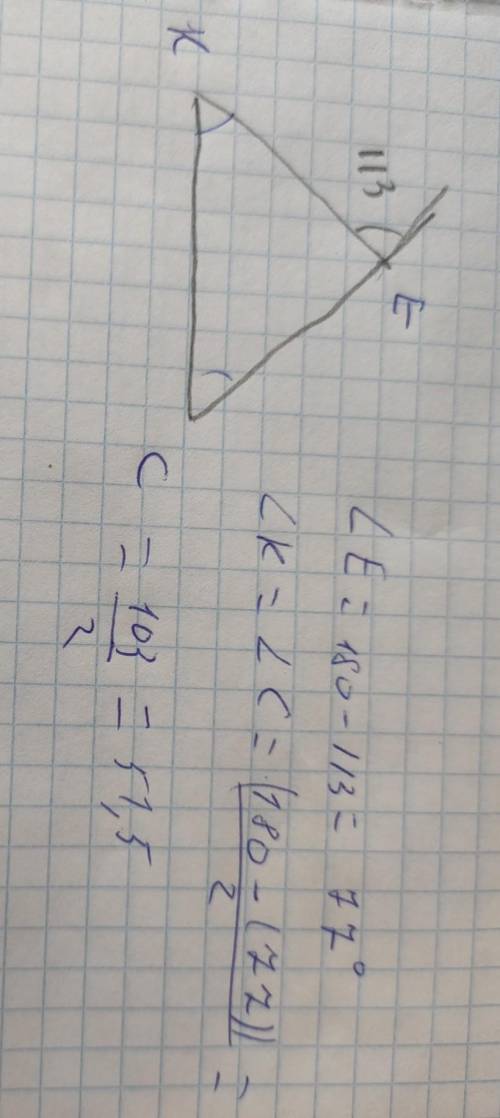 K
113
E
C
∠E = 180 - 113 = 77°
∠K = ∠C = (180 - (77)) / 2 =
= 103 / 2 = 51,5